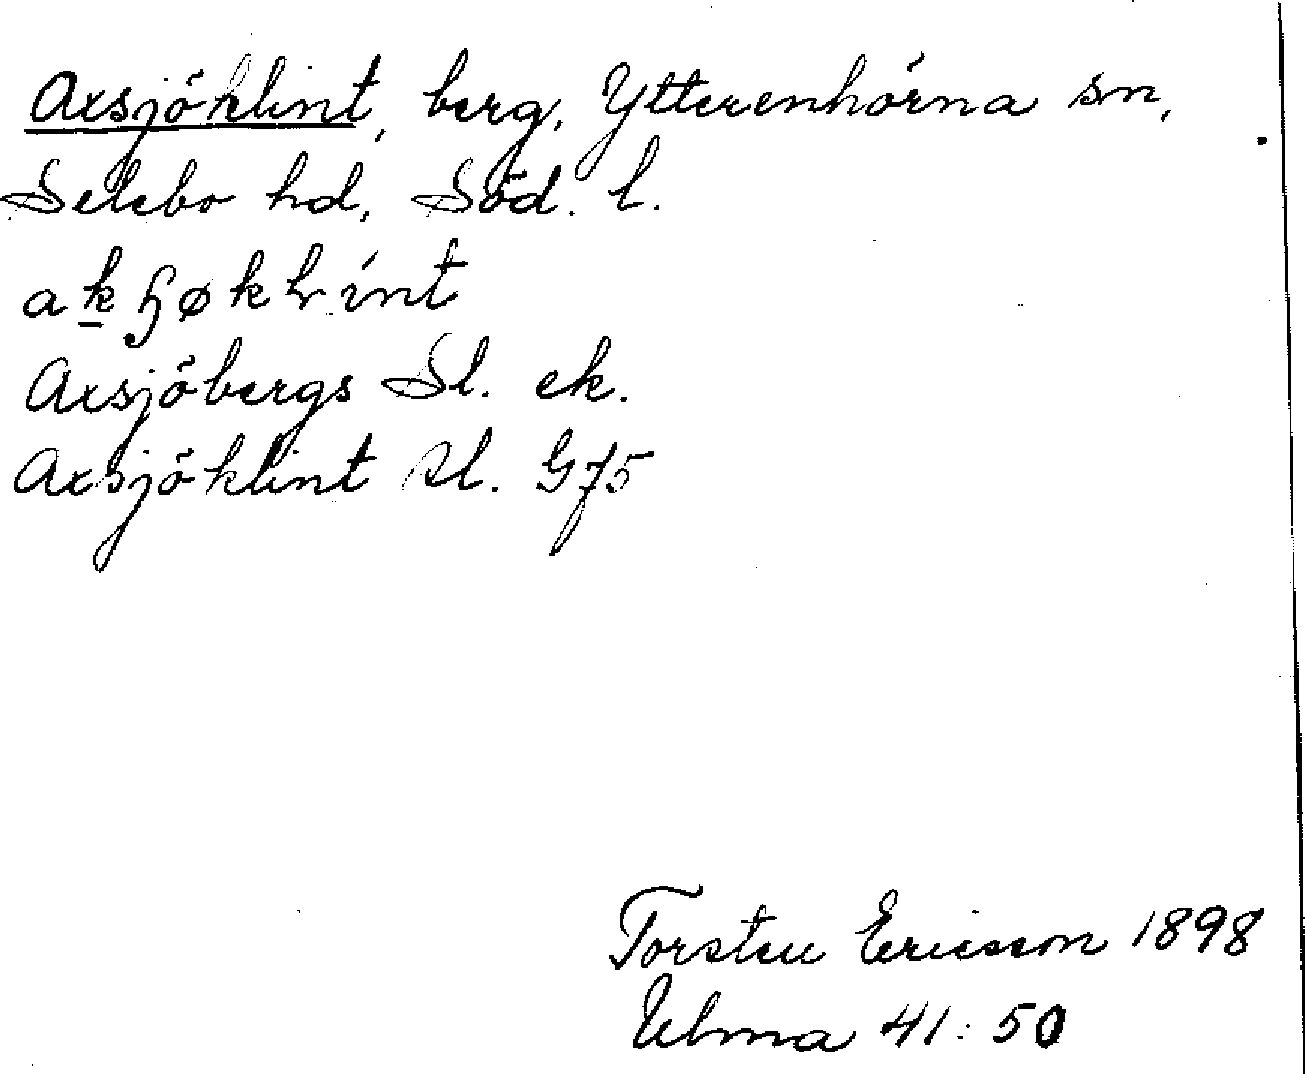 Axsjöklint, berg, Ytterenhörna sn,
Selebo hd, Söd. l.
Axsjöbergs Sl. ek.
Axsjöklint Sl. G75
Torsten Ericsson 1898
Ulma 41:50